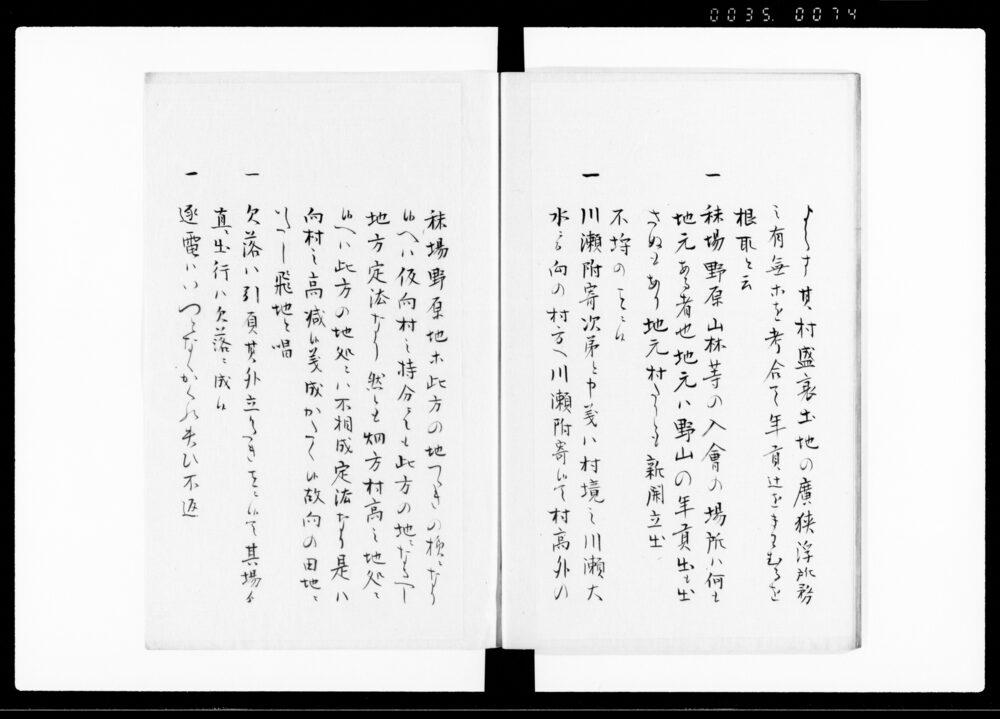 0035. 0074
よらす其村盛衰土地の廣狭浮所務
之有無ホを考合て年貢辻をきるむるを
根取と云
一 秣場野原山林等の入會の場所ハ何も
地元ある者也地元ハ野山の年貢出も出
さぬもあり地元村よりも新開立出
不埒のことに候
一 川瀬附寄次第と申義ハ村境之川瀬大
水ニて向の村方へ川瀬附寄候て村高外の
秣場野原地ホ此方の地つきの様になり
候へハ仮向村之持分にても此方の地になるへし
地方定法なり然とも畑方村高之地処に
候へハ此方の地処にハ不相成定法なり是ハ
向村之高減候義成かたく候故向の田地に
いたし飛地と唱
一 欠落ハ引負其外立のきをいたし候て其場ゟ
直に出行ハ欠落に成候
一 逐電ハいつとなくかくれ失ひ不返